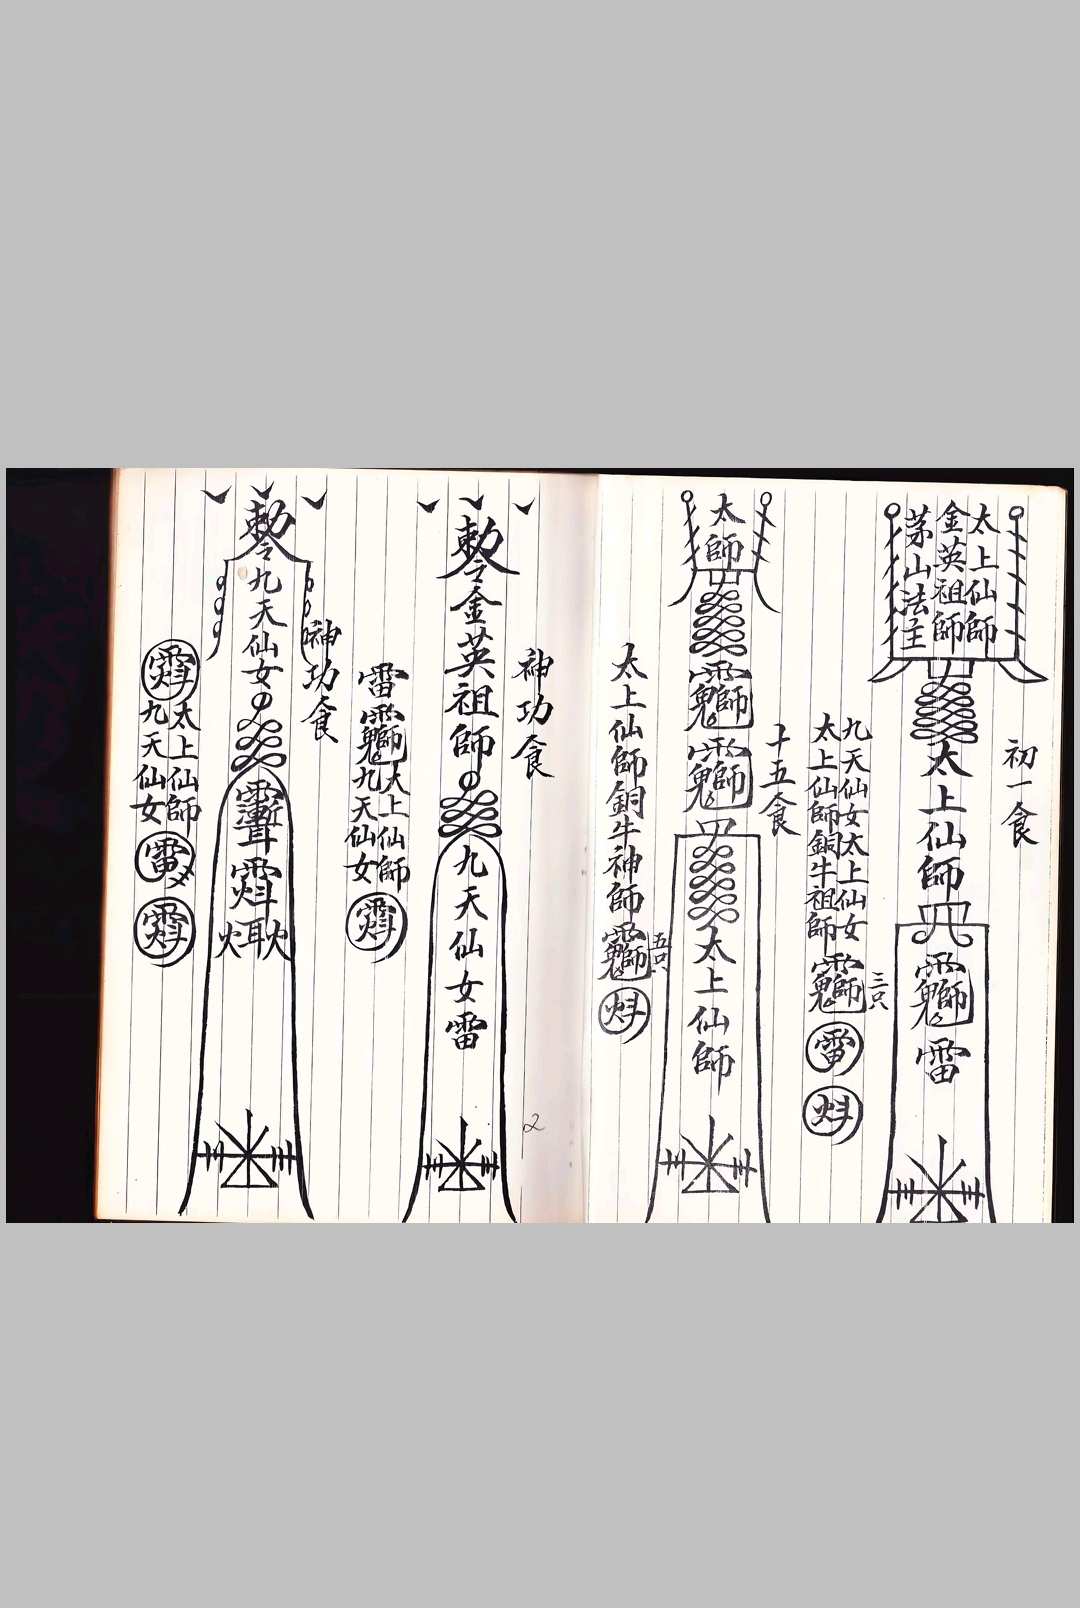 初一食
太上仙師
金英祖師
茅山法主
太上仙師
雷
九天仙女太上仙女
太上仙師銅牛祖師
三只
雷
十五食
太師
太上仙師
五只
太上仙師銅牛神師
神功食
敕令金英祖師
九天仙女雷
雷
太上仙師
九天仙女
神功食
敕令九天仙女
太上仙師
九天仙女
2